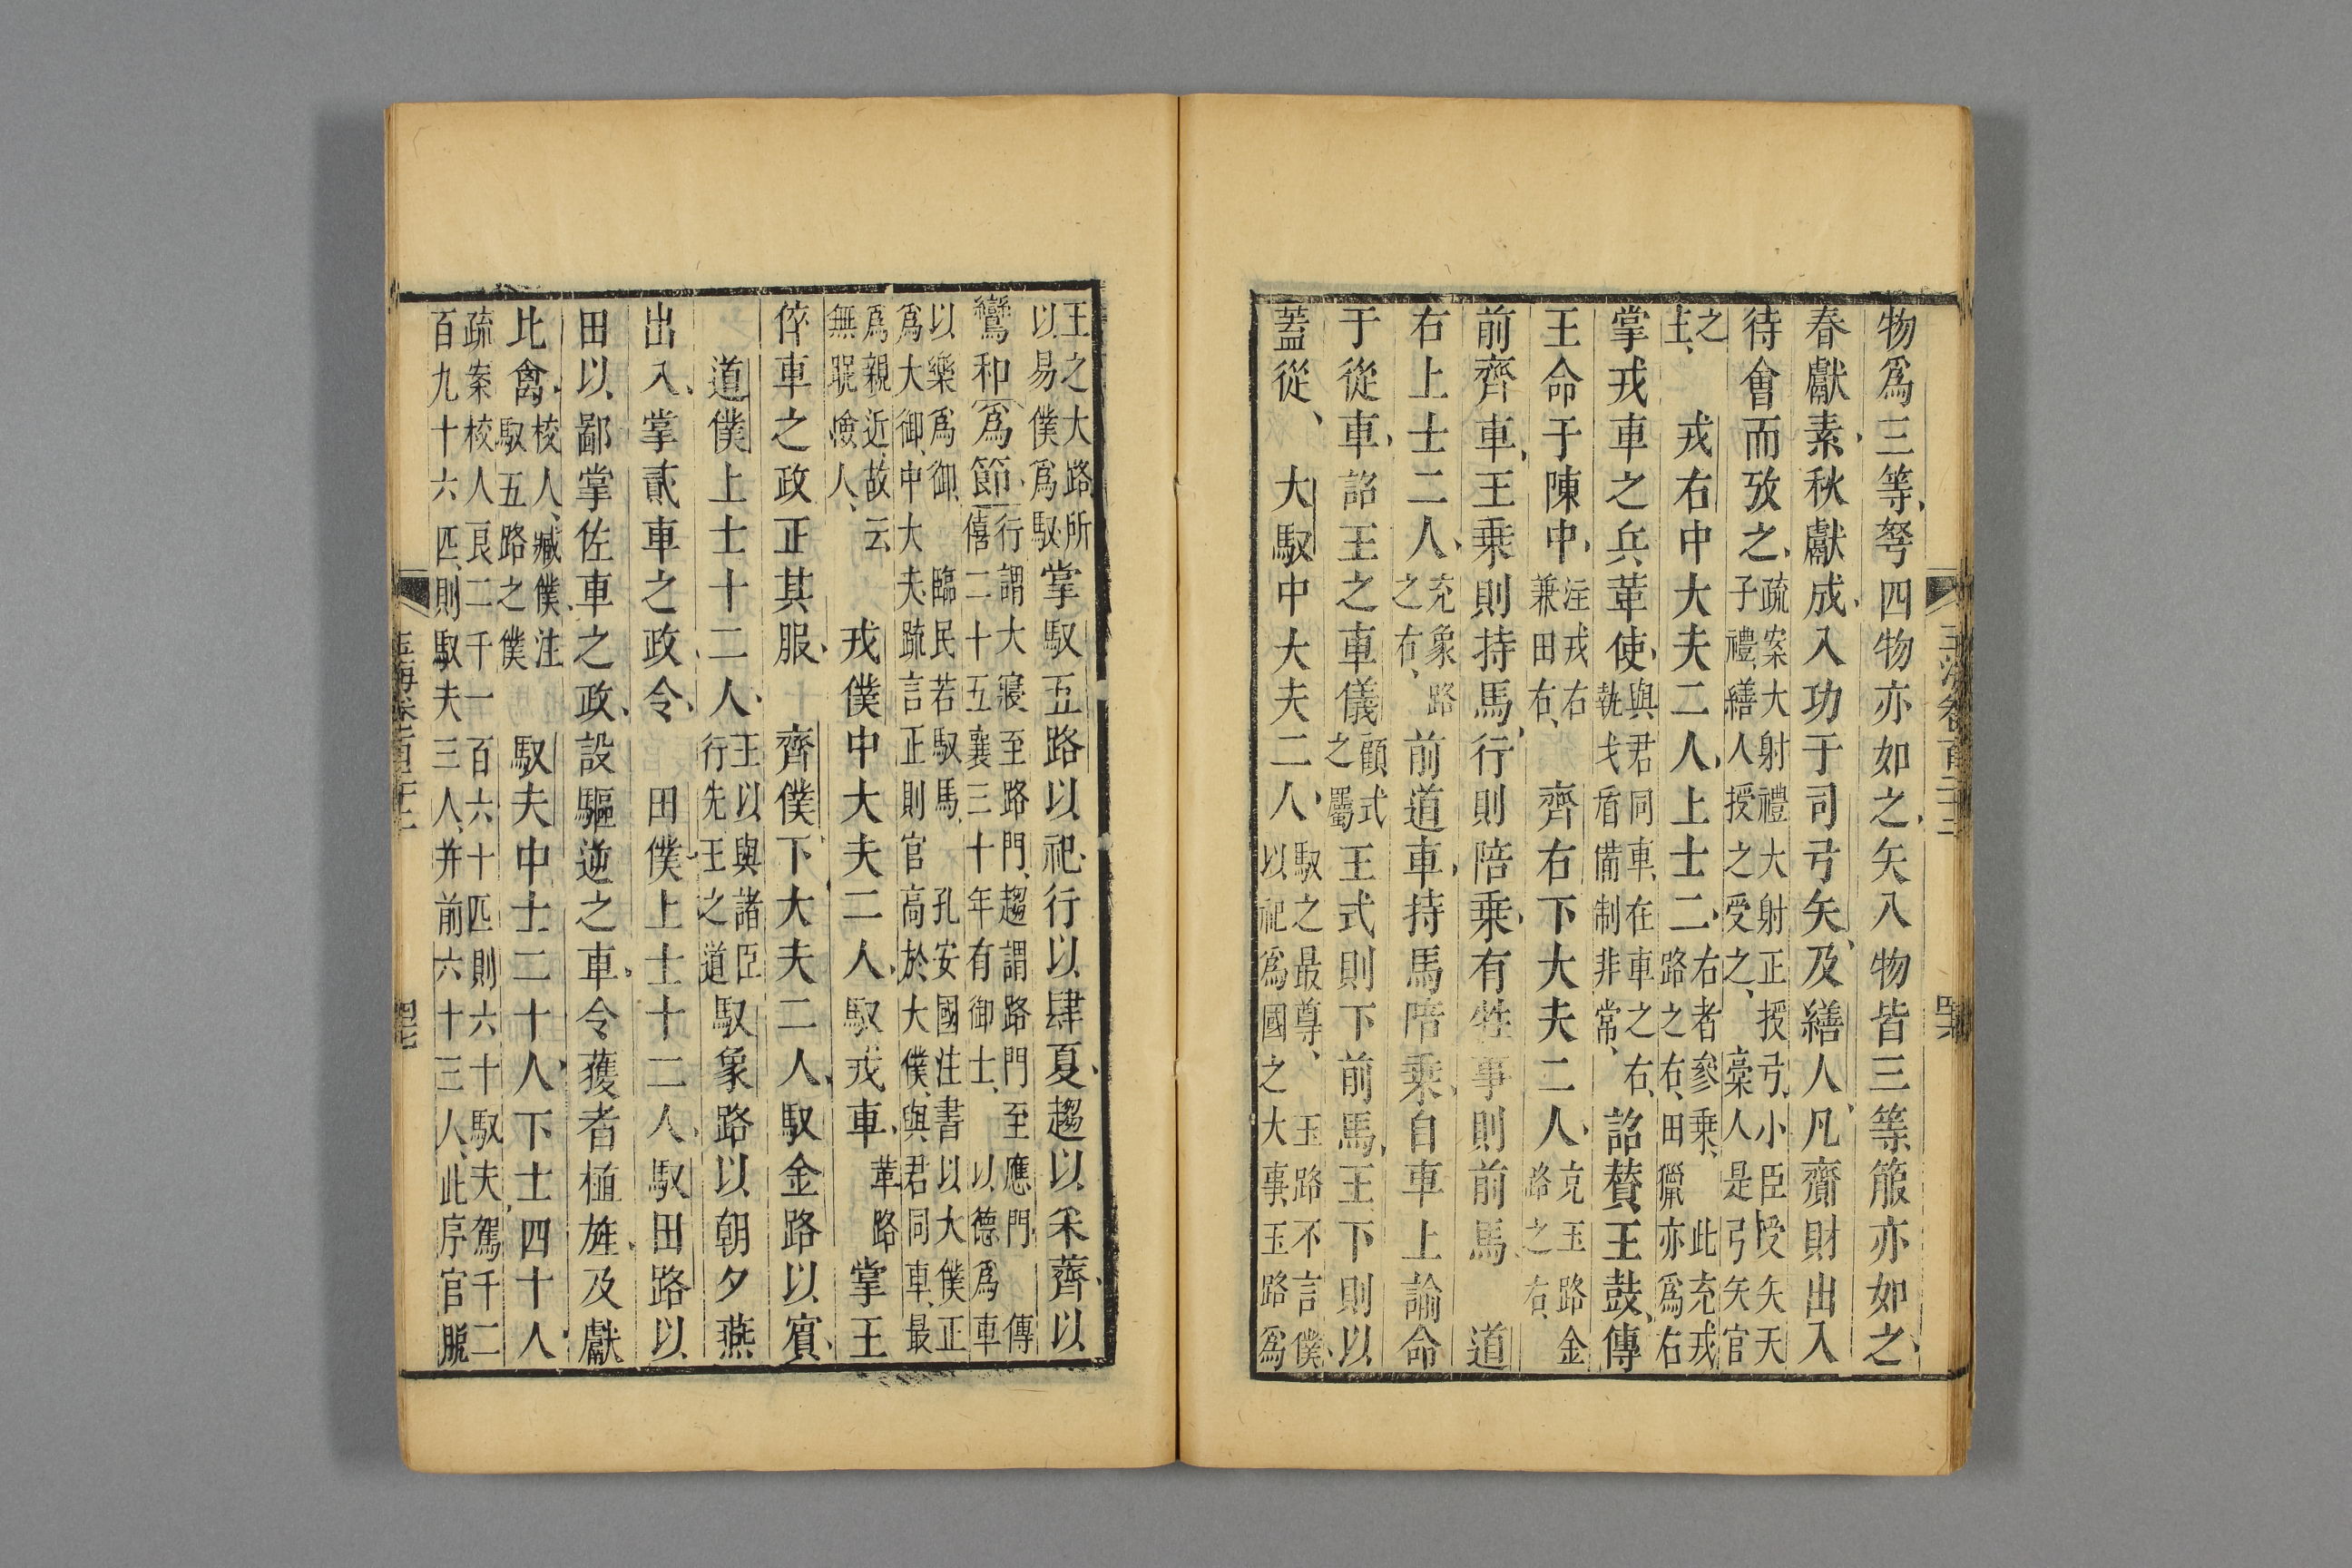 物爲三等弩四物亦如之矢八物皆三等箙亦如之
春獻素秋獻成入功于司弓矢及繕人凡齎財出入
待會而攷之疏案大射禮大射正授弓小臣受矢天
子禮繕人授之受之槀人是弓矢官
之
主戎右中大夫二人上士二右者參乘此充戎
路之右田獵亦爲右
掌戎車之兵革使與君同車在車之右
執戈盾備制非常詔贊王鼓傳
王命于陳中注戎右
兼田右齊右下大夫二人充玉路金
路之右
前齊車王乘則持馬行則陪乘有牲事則前馬道
右上士二人充象路
之右前道車持馬陪乘自車上諭命
于從車詔王之車儀顧式
之屬王式則下前馬王下則以
蓋從大馭中大夫二人馭之最尊玉路不言僕
以祀爲國之大事玉路爲
王之大路所
以易僕爲馭掌馭五路以祀行以肆夏趨以采薺以
鸞和爲節行謂大寢至路門趨謂路門至應門傳
僖二十五襄三十年有御士以德爲車
以樂爲御臨民若馭馬孔安國注書以大僕正
爲大御中大夫疏言正則官高於大僕與君同車最
爲親近故云
無昵憸人戎僕中大夫二人馭戎車革路掌王
倅車之政正其服齊僕下大夫二人馭金路以賓
道僕上士十二人王以與諸臣
行先王之道馭象路以朝夕燕
出入掌貳車之政令田僕上士十二人馭田路以
田以鄙掌佐車之政設驅逆之車令獲者植旌及獻
比禽校人臧僕注
馭五路之僕馭夫中士二十人下士四十人
疏案校人良二千一百六十匹則六十馭夫駕千二
百九十六匹則馭夫三人并前六十三人此序官脫